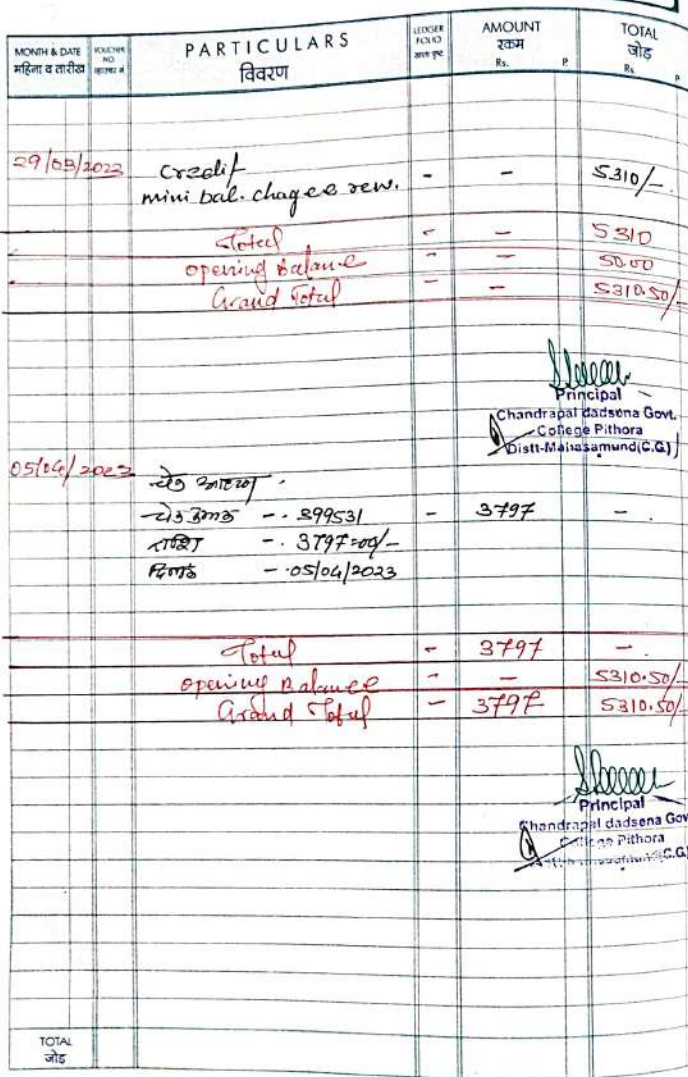 MONTH & DATE VOUCHER NO PARTICULARS LEDGER FOLIO AMOUNT TOTAL
महिना व तारीख विवरण रकम जोड़
Rs. P. Rs. P
29/03/2023 Credit
mini bal. chagee rew. - - 5310/-
Total - - 5310
opening Balance - - 50.00
Grand Total - - 5310.50/-
Principal
Chandrapal dadsena Govt.
College Pithora
Distt-Mahasamund(C.G.)
05/04/2023 चेक आहरण .
चेक क्रमांक -. 899531 - 3797 -
राशि -. 3797=00/-
दिनांक - .05/04/2023
Total - 3797 -
opening Balance - - 5310.50/-
Grand Total - 3797 5310.50/-
Principal
Chandrapal dadsena Gov
College Pithora
TOTAL
जोड़